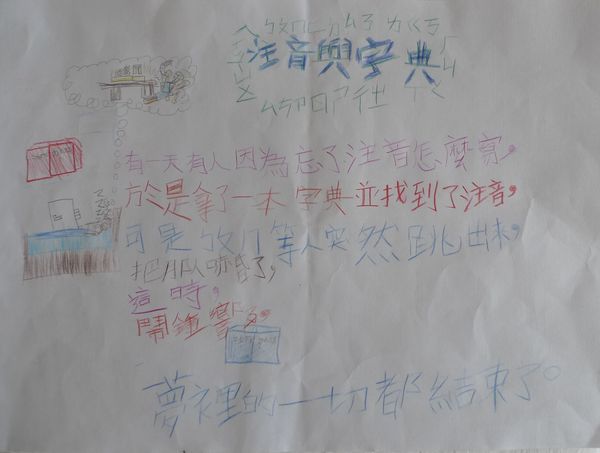 注音與字典
有一天有人因為忘了注音怎麼寫，
於是拿了一本字典並找到了注音，
可是ㄆㄇ等人突然跳出來，
把那人嚇昏了，
這時，
鬧鐘響了，
夢裡的一切都結束了。